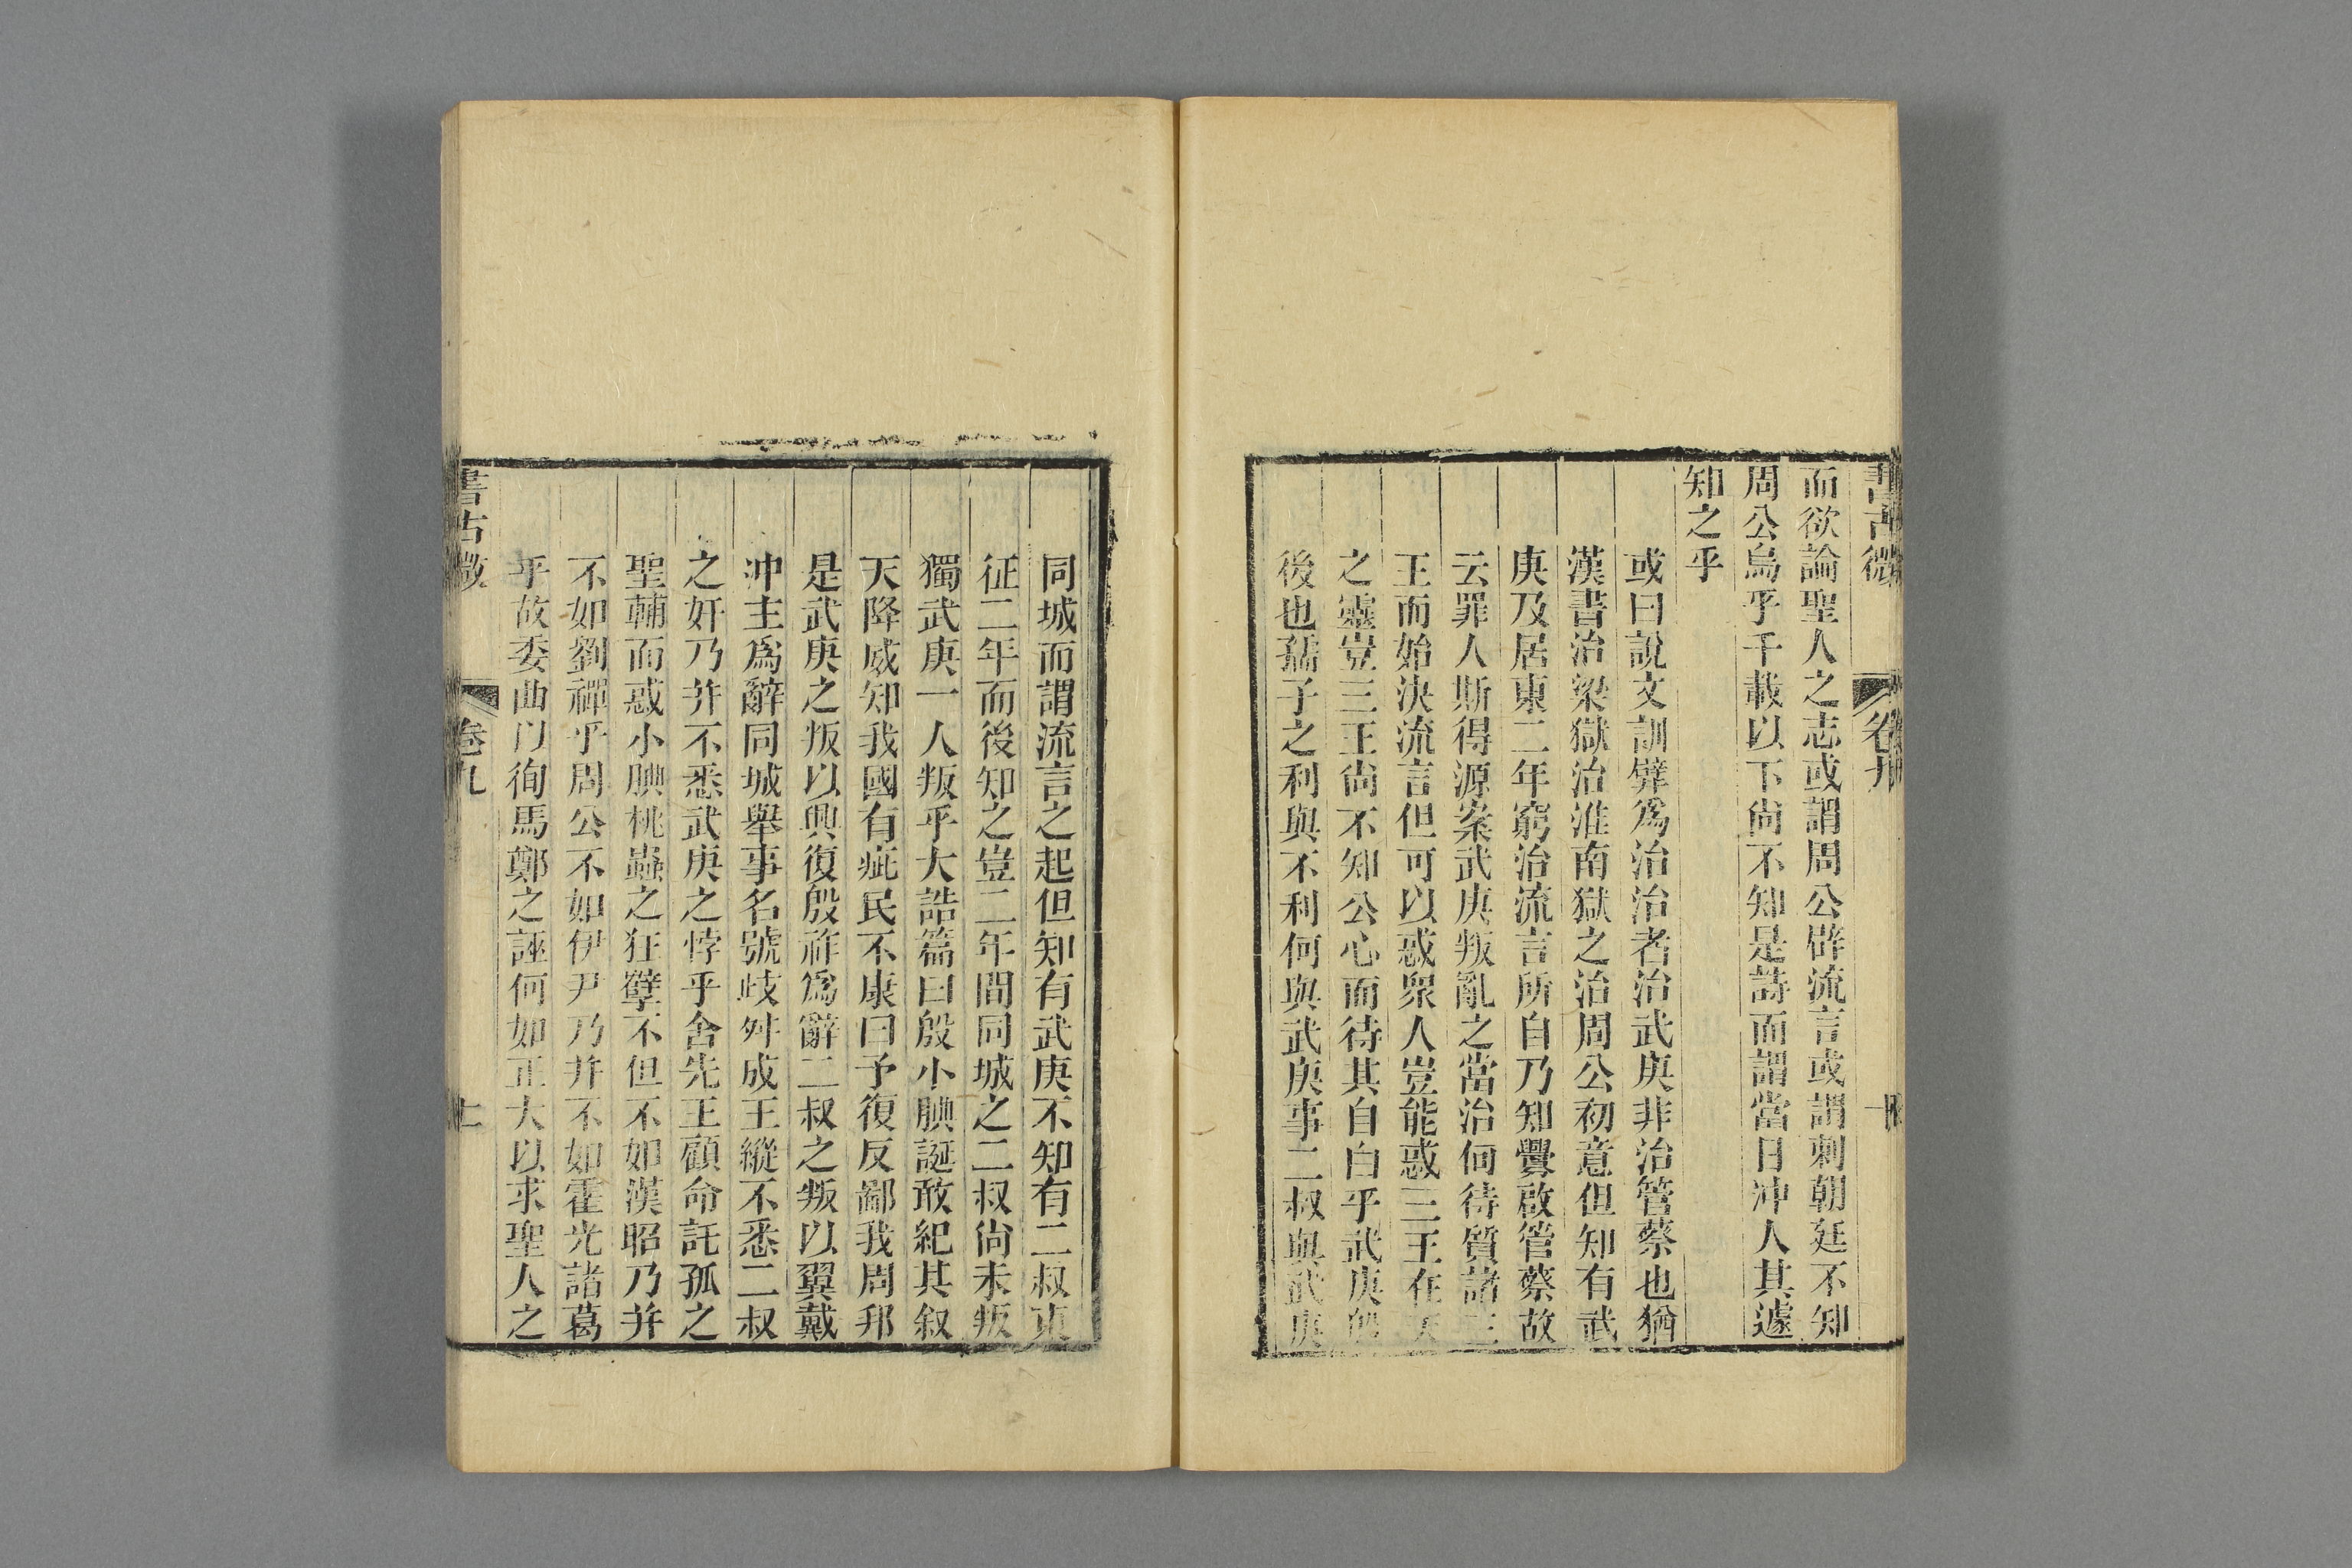 書古微 卷九
而欲論聖人之志或謂周公辟流言或謂刺朝廷不知
周公烏乎千載以下尙不知是詩而謂當日冲人其遽
知之乎
或曰說文訓嬖爲治治者治武庚非治管蔡也猶
漢書治梁獄治淮南獄之治周公初意但知有武
庚及居東二年窮治流言所自乃知釁啟管蔡故
云罪人斯得源案武庚叛亂之當治何待質諸三
王而始決流言但可以惑衆人豈能惑三王在天
之靈豈三王尙不知公心而待其自白乎武庚殷
後也孺子之利與不利何與武庚事二叔與武庚
同城而謂流言之起但知有武庚不知有二叔東
征二年而後知之豈二年間同城之二叔尙未叛
獨武庚一人叛乎大誥篇曰殷小腆誕敢紀其叙
天降威知我國有疵民不康曰予復反鄙我周邦
是武庚之叛以興復殷祚爲辭二叔之叛以翼戴
冲主爲辭同城舉事名號歧舛成王縱不悉二叔
之奸乃并不悉武庚之悖乎舍先王顧命託孤之
聖輔而惑小腆桃蟲之狂孽不但不如漢昭乃并
不如劉禪乎周公不如伊尹乃并不如霍光諸葛
乎故委曲以徇馬鄭之誣何如正大以求聖人之
書古微 卷九